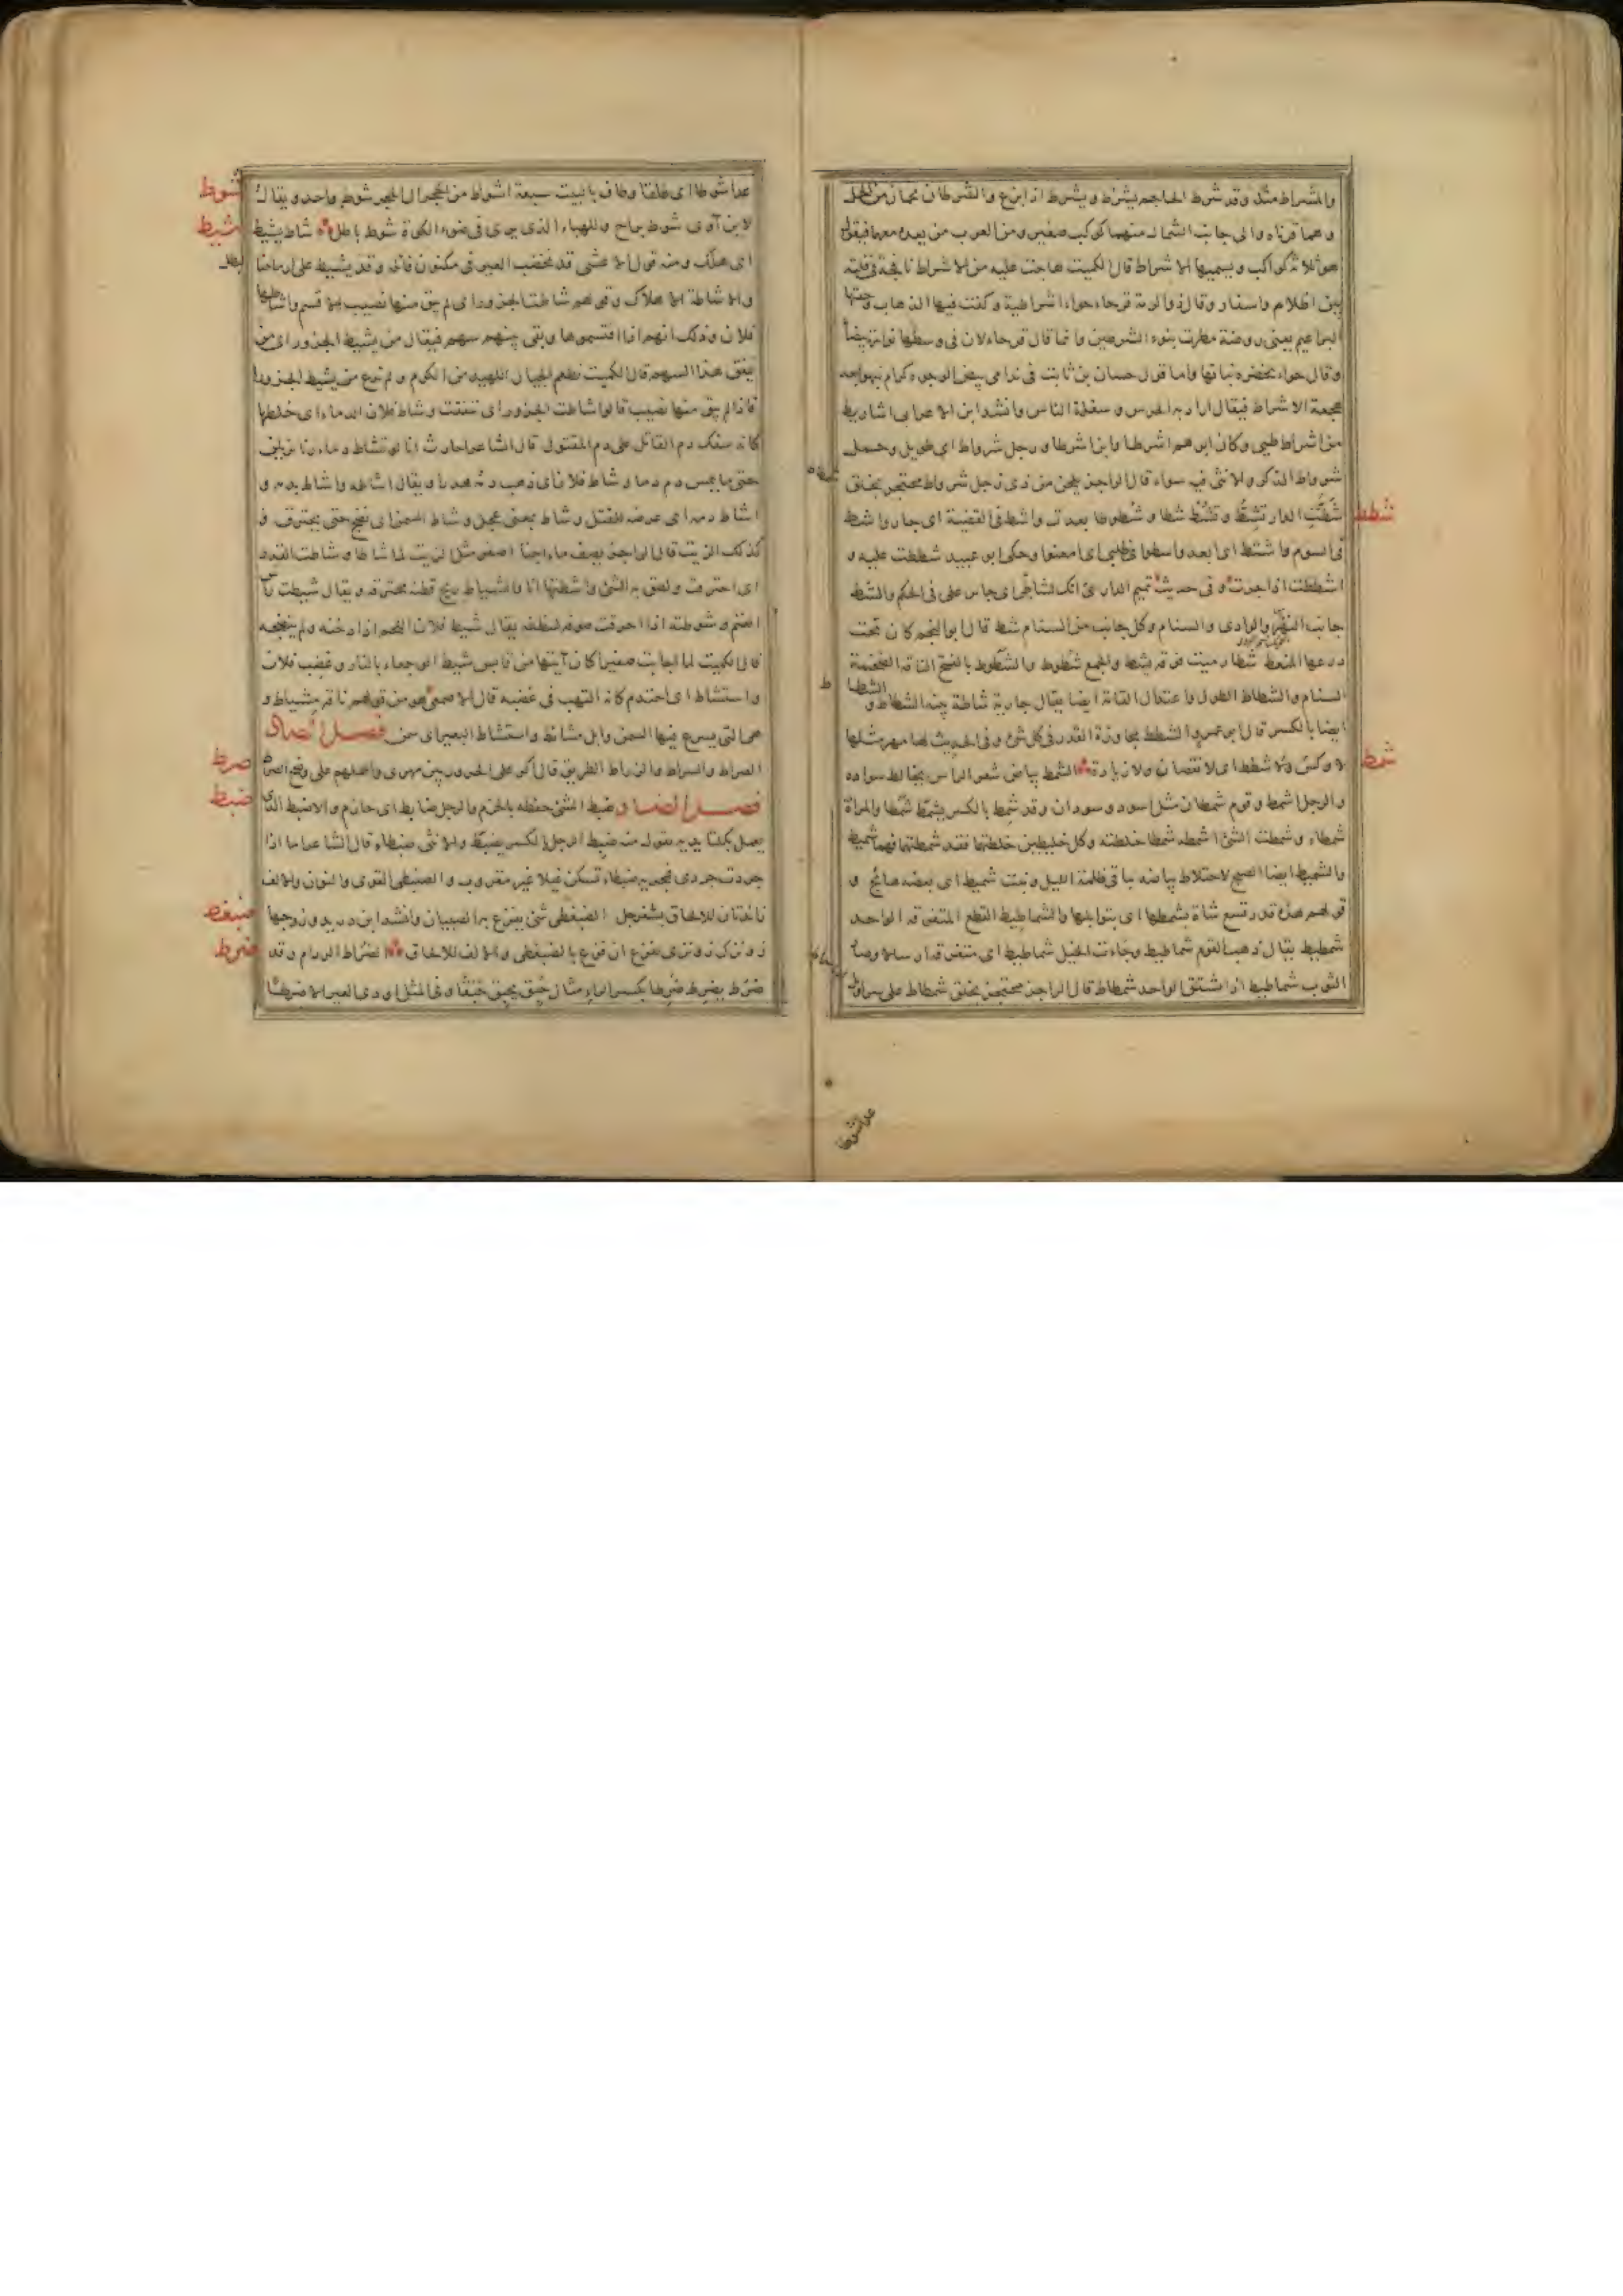 والمشراط مثله وقد شرط الحاجم يشرط ويشرط اذا بزغ والشرطان نجمان من الحمل
وهما قرناه والى جانب الشمالي منهما كوكب صغير ومن العرب من يعده معهما فيقول
هو ثلاثة كواكب ويسميها الاشراط قال الكميت هاجت عليه من الاشراط نافجة في فلتة
بين اظلام واسفار وقال ذو الرمة قرحاء حواء اشراطية وكفت فيها الذهاب وحفتها
البراعيم يعنى روضة مطرت بنوء الشرطين وانما قال قرحاء لان في وسطها نوارة بيضاء
وقال حواء لخضرة نباتها واما قول حسان بن ثابت في ندامى بيض الوجوه كرام نبهوا بعد
هجعة الاشراط فيقال اراد به الحرس وسفلة الناس وانشد ابن الاعرابى اشاريط
من اشراط طيئ وكان ابوهم اشرطا وابن اشرطا ورجل شرواط اى طويل وجمل
شرواط الذكر والانثى فيه سواء قال الراجز يلحن من ذى زجل شرواط محتجز بخلق
شطط
شَطَّتِ الدار تشِطُّ وتشُطُّ شطا وشُطوطا بعدت واشط في القضية اى جار واشط
في السوم واشتط اى ابعد واشطوا في طلبى اى امعنوا وحكى ابو عبيد شططت عليه و
اشططت اذا جرت وفى حديث تميم الدارى انك لشاطى اى جائر على في الحكم والشط
جانب النهر والوادى والسنام وكل جانب من السنام شط قال ابو النجم كان تحت
درعها المنعط شطا رميت فوقه بشط والجمع شطوط والشطوط بالفتح الناقة الضخمة
السنام والشطاط الطول واعتدال القامة ايضا يقال جارية شاطة بينة الشطاط و الشطاط
ايضا بالكسر قال ابو عمرو الشطط مجاوزة القدر في كل شئ وفى الحديث لها مهر مثلها
شمط
لا وكس ولا شطط اى لا نقصان ولا زيادة الشمط بياض شعر الراس يخالط سواده
والرجل اشمط وقوم شمطان مثل اسود وسودان وقد شمط بالكسر يشمط شمطا والمراة
شمطاء وشمطت الشئ اشمطه شمطا خلطته وكل خليطين خلطتهما فقد شمطتهما فهما شميط
والشميط ايضا الصبح لاختلاط بياضه بباقى ظلمة الليل ونبت شميط اى بعضه هائج و
قولهم هذه قدر تسع شاة بشمطها اى بتوابلها والشماطيط القطع المتفرقة الواحد
شمطيط يقال ذهب القوم شماطيط وجاءت الخيل شماطيط اى متفرقة ارسالا وصار
الثوب شماطيط اذا تشقق الواحد شمطاط قال الراجز محتجز بخلق شمطاط على سراويل
عدا شوط
شوط
عدا شوطا اى طلقا وطاف بالبيت سبعة اشواط من الحجر الى الحجر شوط واحد ويقال
شيط
لابن آوى شوط براح وللهباء الذى يرى في ضوء الكوة شوط باطل شاط يشيط
اى هلك ومنه قول الاعشى قد نخضب العير في مكنون فائله وقد يشيط على ارماحنا البطل
والاشاطة الاهلاك وقولهم شاطت الجزور اى لم يبق منها نصيب الا قسم واشاطها
فلان وذلك انهم اذا اقتسموها وبقى بينهم سهم فيقال من يشيط الجزور اى من
ينفق هذا السهم قال الكميت نطعم الجيال اللهيد من الكوم ولم ندع من يشيط الجزورا
فاذا لم يبق منها نصيب قالوا شاطت الجزور اى تنفقت وشاط فلان الدماء اى خلطها
كانه سفك دم القاتل على دم المقتول قال الشاعر احارث انا لو تشاط دماؤنا تزيلن
حتى ما يمس دم دما وشاط فلان اى ذهب دمه هدرا ويقال اشاطه واشاط بدمه و
اشاط دمه اى عرضه للقتل وشاط بمعنى عجل وشاط السمن اى نضج حتى يحترق و
كذلك الزيت قال الراجز يصف ماء اجنا اصفر مثل الزيت لما شاطا وشاطت القدر
اى احترقت ولصق بها الشئ واشطتها انا والشياط ريح قطنة محترقة ويقال شيطت راس
الغنم وشوطته اذا احرقت صوفه لتنظفه يقال شيط فلان اللحم اذا دخنه ولم ينضجه
قال الكميت لما اجابت صفيرا كان آيتها من قابس شيط الوجعاء بالنار وغضب فلان
واستشاط اى احتدم كانه التهب في غضبه قال الاصمعى هو من قولهم ناقة مشياط و
هى التى يسرع فيها السمن وابل مشائيط واستشاط البعير اى سمن فصل الصاد
صرط
الصراط والسراط والزراط الطريق قال اكر على الحروريين مهرى واحملهم على وضح الصراط
ضبط
فصل الضاد ضبط الشئ حفظه بالحزم والرجل ضابط اى حازم والاضبط الذى
يعمل بكلتا يديه تقول منه ضبط الرجل بالكسر يضبط والانثى ضبطاء قال الشاعر اما اذا
حردت حردى فمجرية ضبطاء تسكن غيلا غير مقروب والضبنطى القوى والنون والالف
ضبغط
زائدتان للالحاق بسفرجل الضبغطى شئ يفزع به الصبيان وانشد ابن دريد وزوجها
ضرط
زونزك زونزى يفزع ان فزع بالضبغطى والالف للالحاق الضراط الردام وقد
ضرط يضرط ضرطا بكسر الراء مثال حبق يحبق حبقا وفى المثل اودى العير الا ضرطا